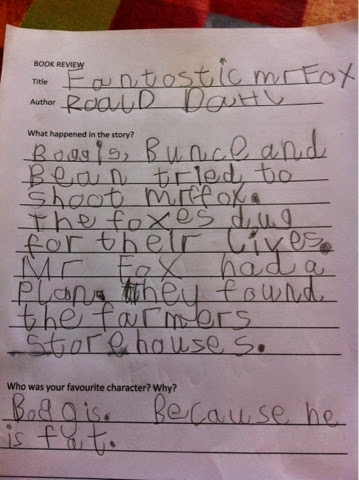 BOOK REVIEW
Title Fantastic mr Fox
Author ROALD DAHL
What happened in the story?
Boggis, Bunce and
Bean tried to
shoot mr fox.
the foxes dug
for their lives.
Mr Fox had a
plan. they found
the farmers
storehouses.
Who was your favourite character? Why?
Boggis. Because he
is fat.